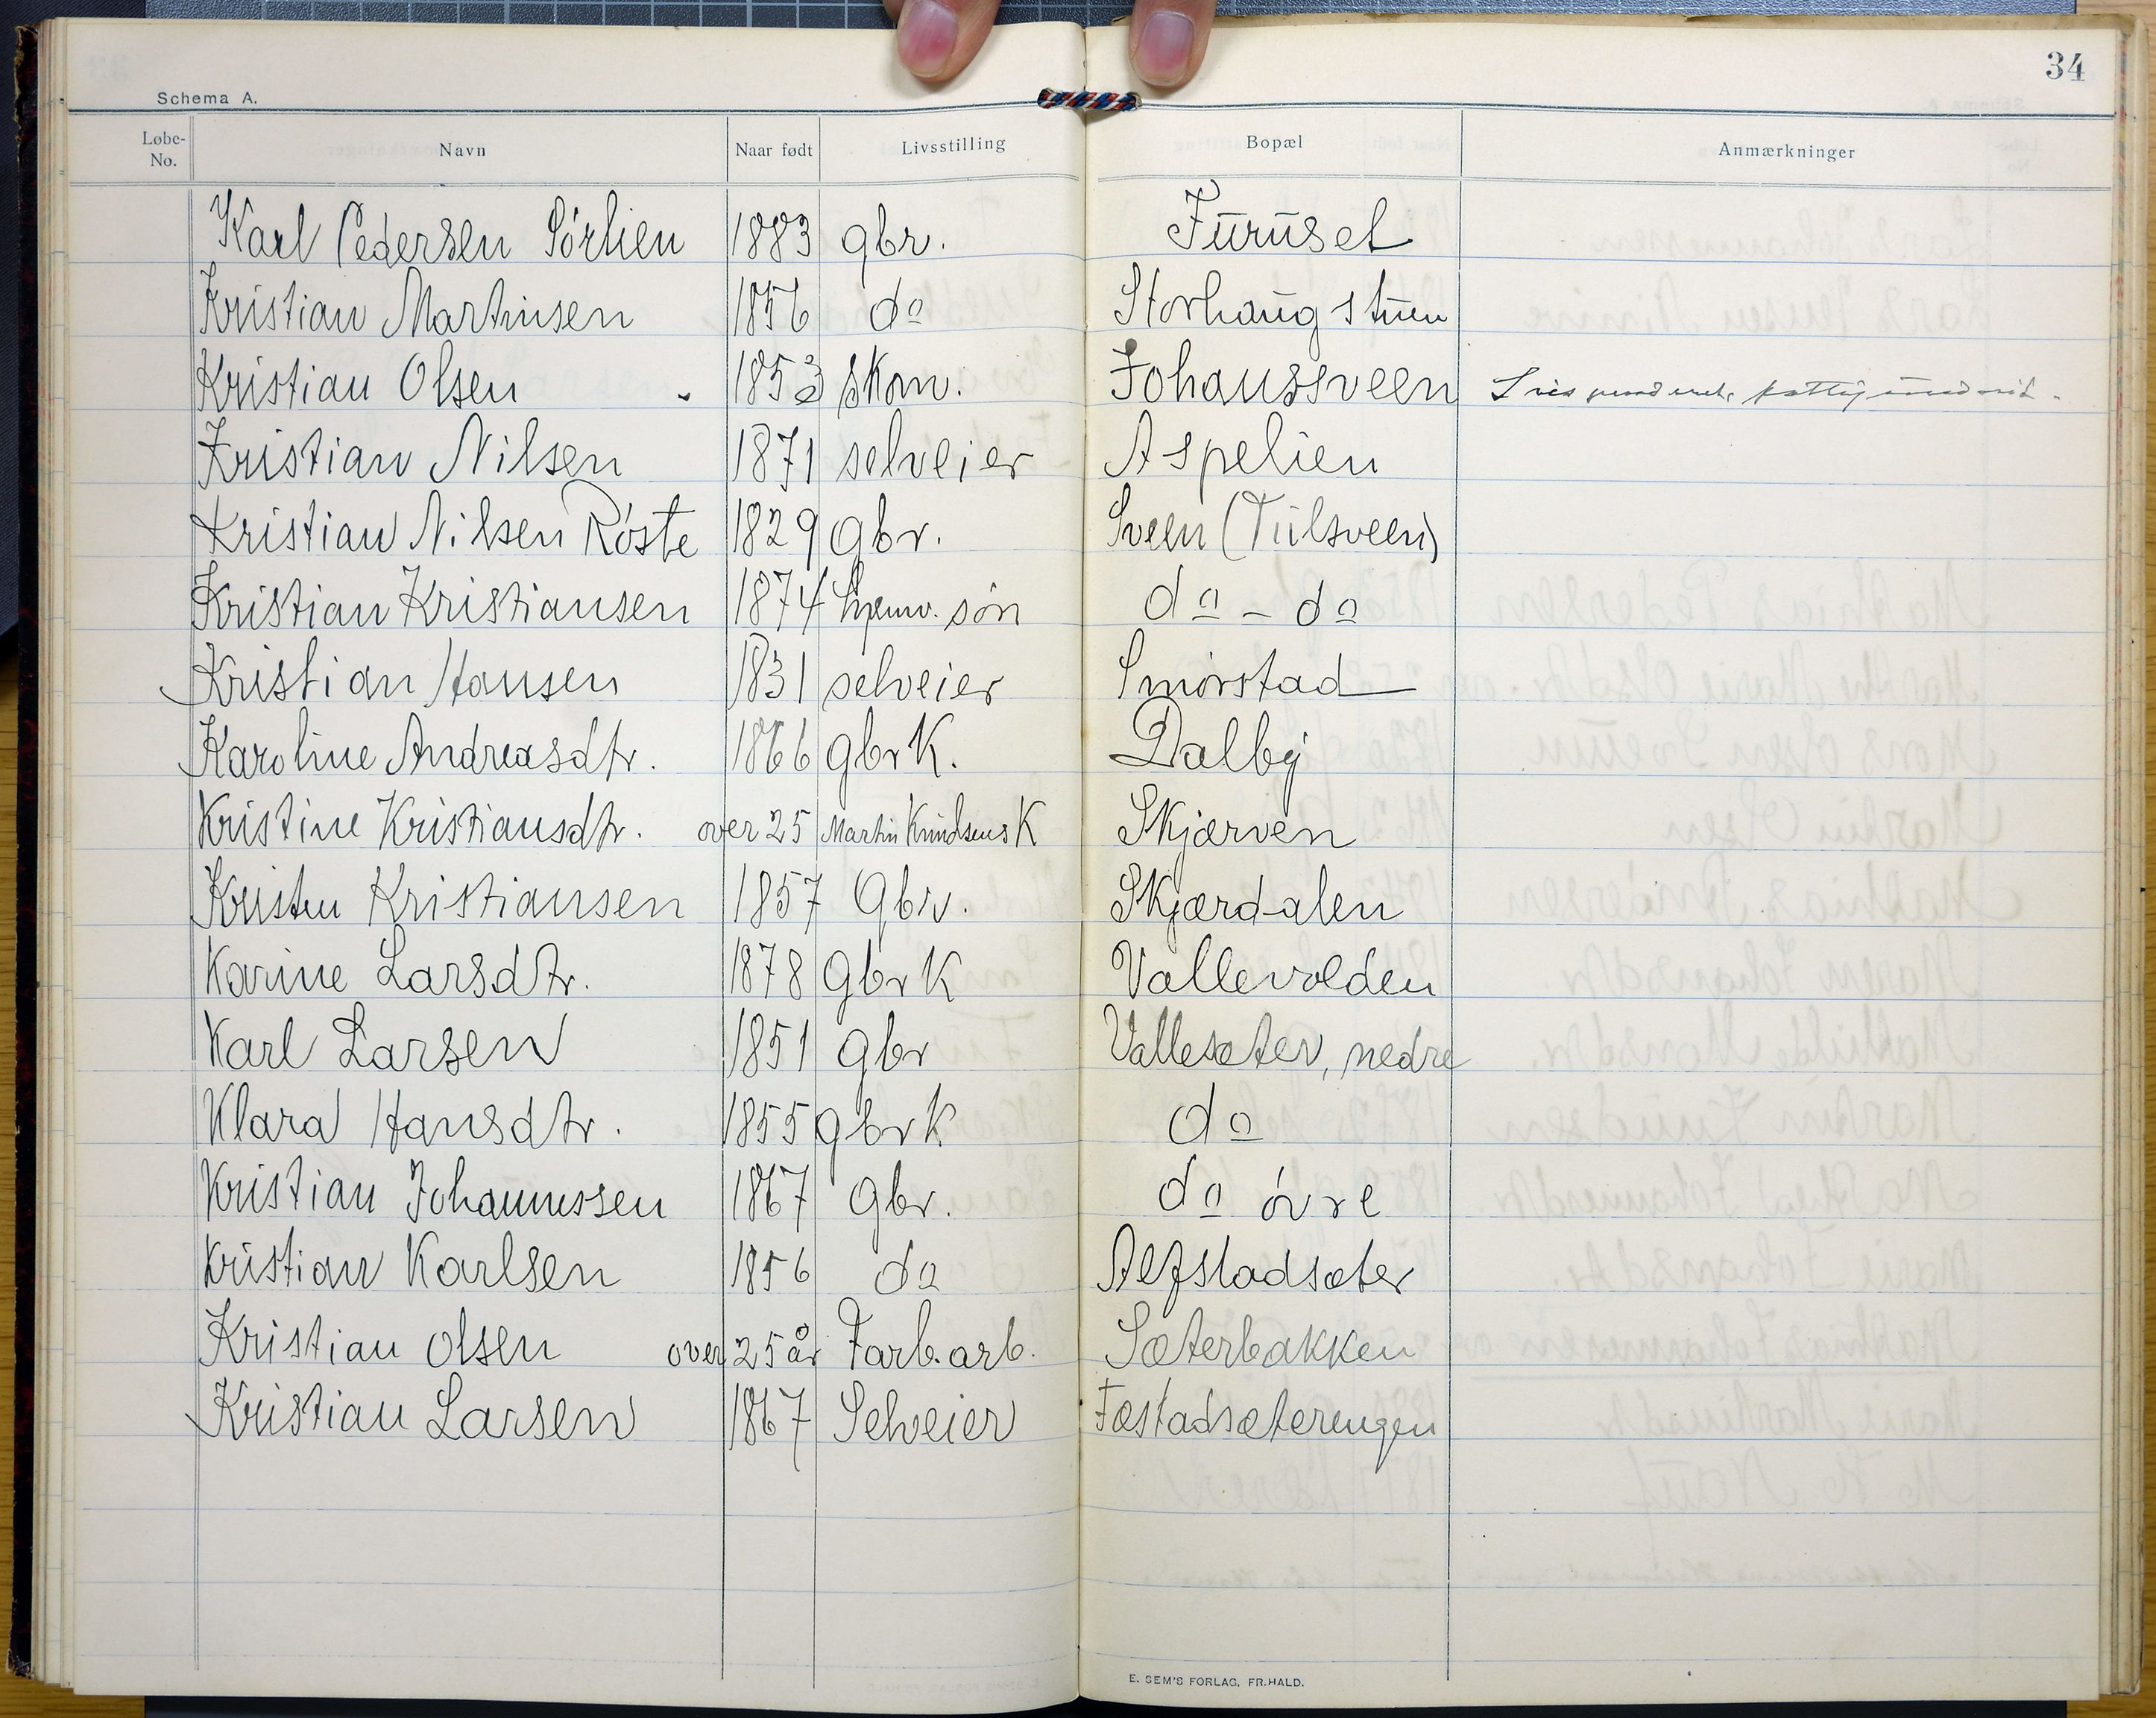 34
Schema A.
Løbe-No. Navn Naar født Livsstilling Bopæl Anmærkninger
Karl Pedersen Sörlien 1883 gbr. Furuset
Kristian Martinsen 1856 do Storhaugstuen
Kristian Olsen 1853 skom. Johanssveen
Kristian Nilsen 1871 selveier Aspelien
Kristian Nilsen Röste 1829 gbr. Sveen (Tulsveen)
Kristian Kristiansen 1874 hjemv. sön do - do
Kristian Hansen 1831 selveier Smörstad
Karoline Andreasdtr. 1866 gbrK. Dalby
Kristine Kristiansdtr. over 25 Martin Knudsens K Skjærven
Kristen Kristiansen 1857 Gbr. Skjærdalen
Karine Larsdtr. 1878 GbrK Vallevolden
Karl Larsen 1851 Gbr Vallesæter, nedre
Klara Hansdtr. 1855 gbrK do
Kristian Johannessen 1867 Gbr. do övre
Kristian Karlsen 1856 do Alfstadsæter
Kristian Olsen over 25 år Farb. arb. Sæterbakken
Kristian Larsen 1867 Selveier Fæstadsæterengen
E. SEM'S FORLAG, FR.HALD.